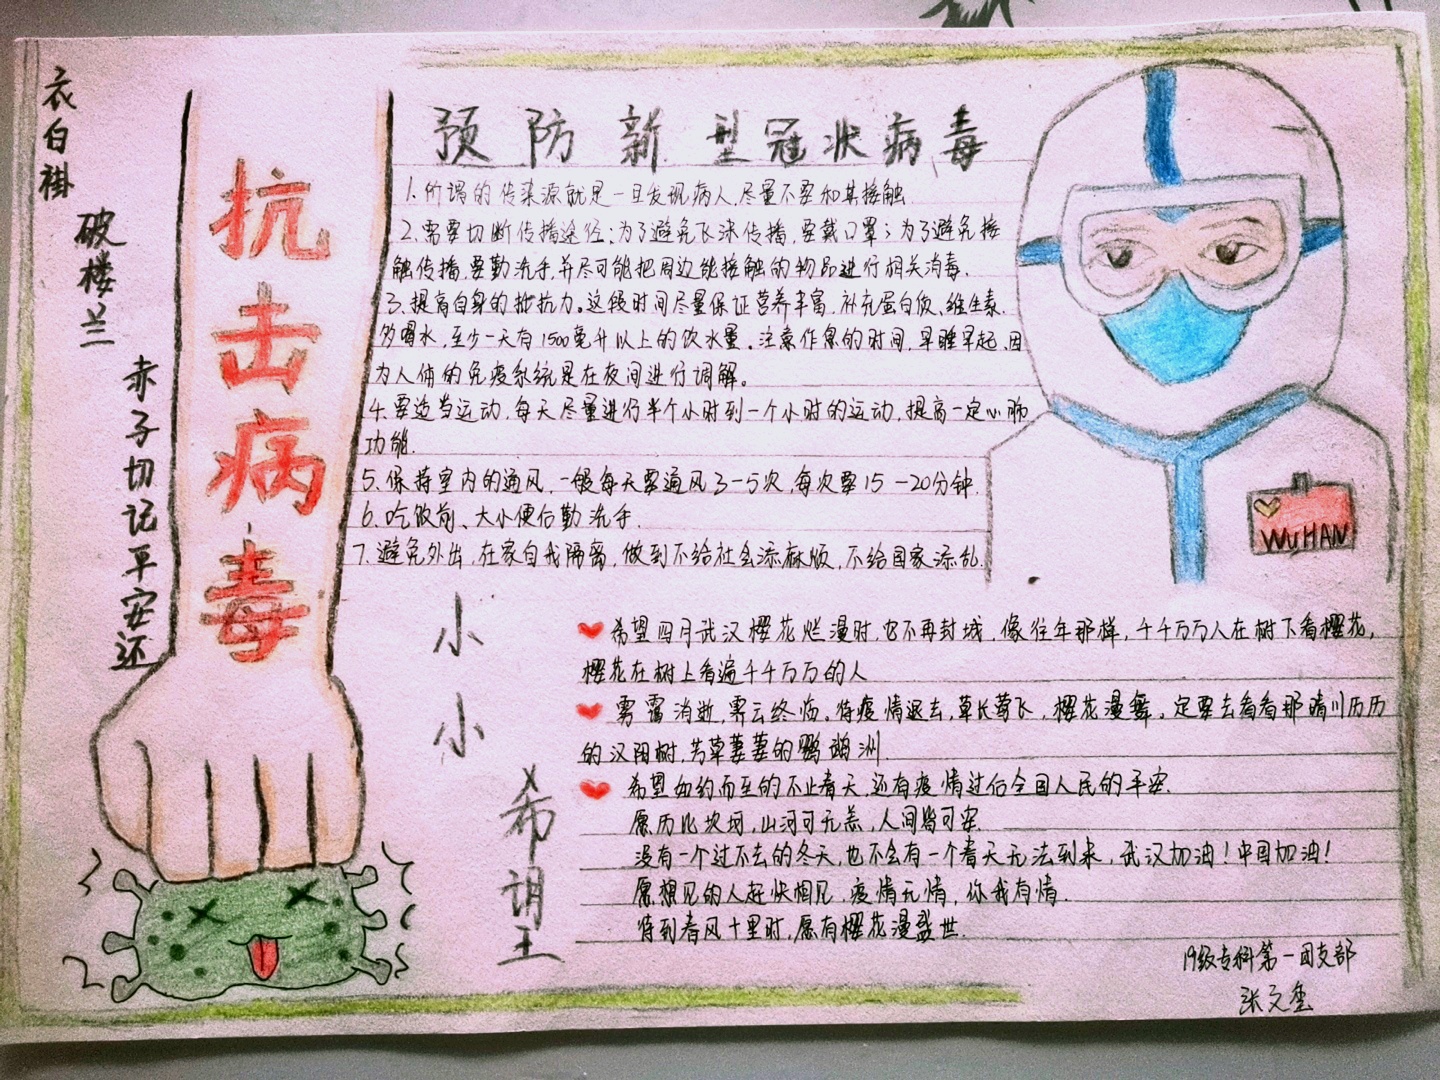 衣白褂
破楼兰
赤子切记平安还
抗击病毒
预防新型冠状病毒
1.所谓的传染源就是一旦发现病人,尽量不要和其接触.
2.需要切断传播途径:为了避免飞沫传播,要戴口罩;为了避免接
触传播,要勤洗手,并尽可能把周边能接触的物品进行相关消毒.
3.提高自身的抵抗力。这段时间尽量保证营养丰富,补充蛋白质、维生素.
多喝水,至少一天有1500毫升以上的饮水量。注意作息的时间,早睡早起,因
为人体的免疫系统是在夜间进行调解。
4.要适当运动,每天尽量进行半个小时到一个小时的运动,提高一定心肺
功能.
5.保持室内的通风,一般每天要通风3-5次,每次要15-20分钟.
6.吃饭前、大小便后勤洗手.
7.避免外出,在家自我隔离,做到不给社会添麻烦,不给国家添乱.
WUHAN
小小希望
希望四月武汉樱花烂漫时,它不再封城,像往年那样,千千万万人在树下看樱花,
樱花在树上看遍千千万万的人
雾霭消逝,霁云终临。待疫情退去,草长莺飞,樱花漫舞。定要去看看那晴川历历
的汉阳树,芳草萋萋的鹦鹉洲.
希望如约而至的不止春天,还有疫情过后全国人民的平安.
愿历此坎坷,山河可无恙,人间皆可安.
没有一个过不去的冬天,也不会有一个春天无法到来,武汉加油!中国加油!
愿想见的人赶快相见,疫情无情,你我有情.
待到春风十里时,愿有樱花漫盛世.
19级专科第一团支部
张文